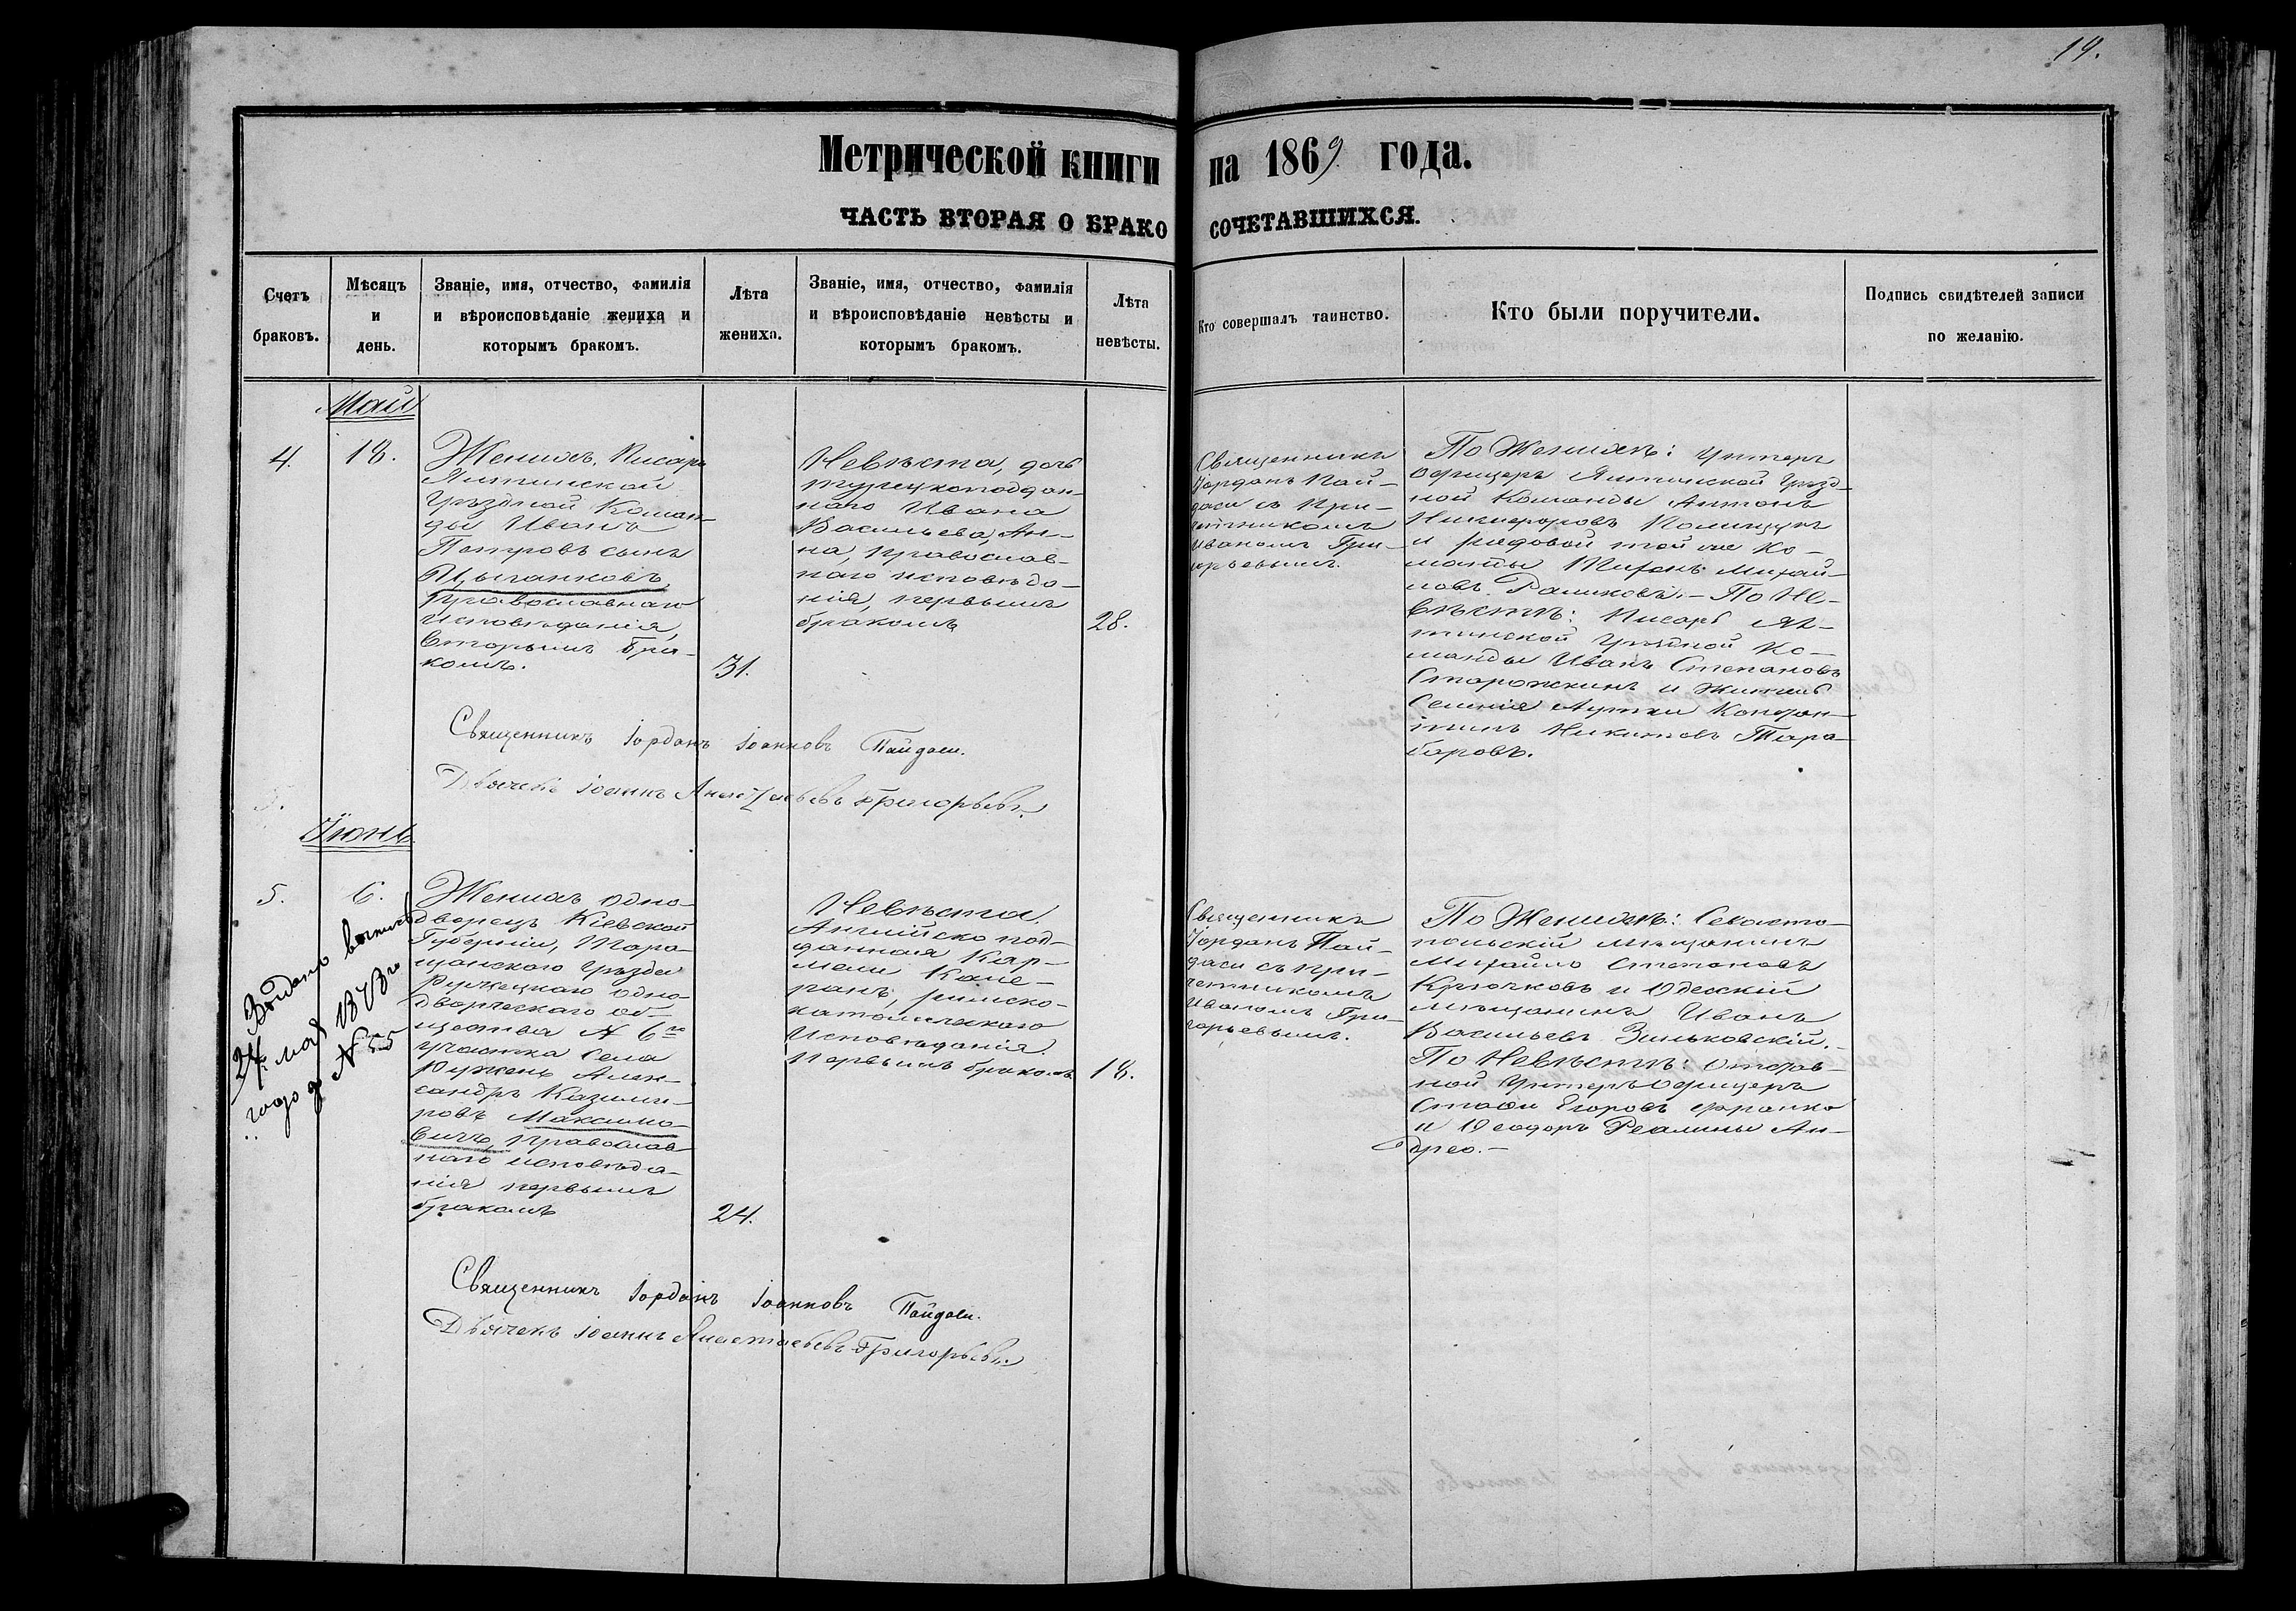 19.
Метрической книги на 1869 года.
ЧАСТЬ ВТОРАЯ О БРАКО СОЧЕТАВШИХСЯ.
Счетъ браковъ.
Мѣсяцъ и день.
Званіе, имя, отчество, фамилія
и вѣроисповѣданіе жениха и
которымъ бракомъ.
Лѣта жениха.
Званіе, имя, отчество, фамилія
и вѣроисповѣданіе невѣсты и
которымъ бракомъ.
Лѣта невѣсты.
Кто совершалъ таинство.
Кто были поручители.
Подпись свидѣтелей записи
по желанію.
Май
4.
18.
Женихъ, Писарь
Ялтинской
Уѣздной Коман-
ды Иванъ
Петровъ сынъ
Цыганковъ,
православнаго
Исповѣданія,
вторымъ бра-
комъ.
31.
Невѣста, дочь
турецкоподдан-
наго Ивана
Васильева, Ан-
на, православ-
наго исповѣда-
нія, первымъ
бракомъ
28.
Священникъ
Іорданъ Пай-
даси съ при-
четникомъ
Иваномъ Гри-
горьевымъ.
По Женихѣ: Унтеръ
офицеръ Ялтинской Уѣзд-
ной Команды Антонъ
Никифоровъ
и рядовой той же Ко-
манды Михай-
ловъ По Не-
вѣстѣ: Писарь Ял-
тинской Уѣздной Ко-
манды Иванъ Степановъ
Сторожкинъ и житель
Селенія Аутки Констан-
тинъ Никитовъ Тара-
баровъ.
Священникъ Іорданъ Іоанновъ Пайдаси.
Дьячекъ Іоаннъ Григорьевъ.
Іюнь
5.
6.
Выдано выпись
24. мая 1873го
года № 55
Женихъ одно-
дворецъ Кіевской
Губерніи, Тара-
щанскаго Уѣзда
Ружецкаго одно-
дворческаго об-
щества № 6го
участка Села
Ружекъ Алек-
сандръ Казими-
ровъ Максимо-
вичъ, православ-
наго исповѣда-
нія первымъ
бракомъ
24.
Невѣста,
Англійско под-
данная Кар-
мели Каме-
ранъ, римско-
католическаго
Исповѣданія.
Первымъ бракомъ
18.
Священникъ
Іорданъ Пай-
даси съ при-
четникомъ
Иваномъ Гри-
горьевымъ.
По Женихѣ: Севасто-
польскій мѣщанинъ
Михайло Степановъ
Крючковъ и Одесскій
мѣщанинъ Иванъ
Васильевъ Зиньковскій.
По Невѣстѣ: Отстав-
ной Унтеръ Офицеръ
Егоровъ Франко
и Ѳеодоръ Ан-
дрео.
Священникъ Іорданъ Іоанновъ Пайдаси.
Дьячекъ Іоаннъ Григорьевъ.